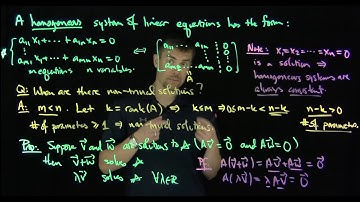 A homogeneous system of linear equations has the form:
a₁₁x₁ + ··· + a₁ₙxₙ = 0
⋮
aₘ₁x₁ + ··· + aₘₙxₙ = 0
m equations n variables.
⟺
a₁₁ ··· a₁ₙ 0
⋮
aₘ₁ ··· aₘₙ 0
A
Note: x₁ = x₂ = ··· = xₙ = 0
is a solution ⇒
homogeneous systems are
always consistent.
Q: When are there non-trivial solutions?
A: m<n. Let k = rank(A) ⇒ k≤m ⇒ 0≤n-m ≤ n-k
n-k>0
# of parameters
# of parameters ≥ 1 ⇒ non-trivial solutions
Prop: Suppose v⃗ and w⃗ are solutions to A (Av⃗ = 0⃗ and Aw⃗ = 0⃗)
then v⃗+w⃗ solves A
λv⃗ solves A ∀λ∈ℝ
Pf: A(v⃗+w⃗) = Av⃗ + Aw⃗ = 0⃗
A(λv⃗) = λAv⃗ = 0⃗